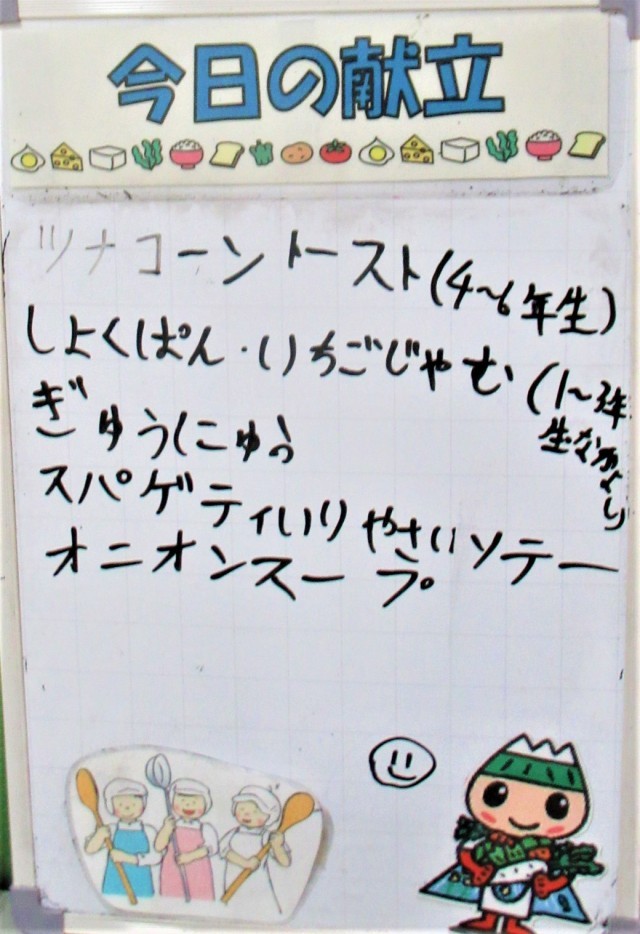 今日の献立
ツナコーントースト(4~6年生)
しょくぱん・いちごじゃむ(1~3年
生なかよし)
ぎゅうにゅう
スパゲティいりやさいソテー
オニオンスープ